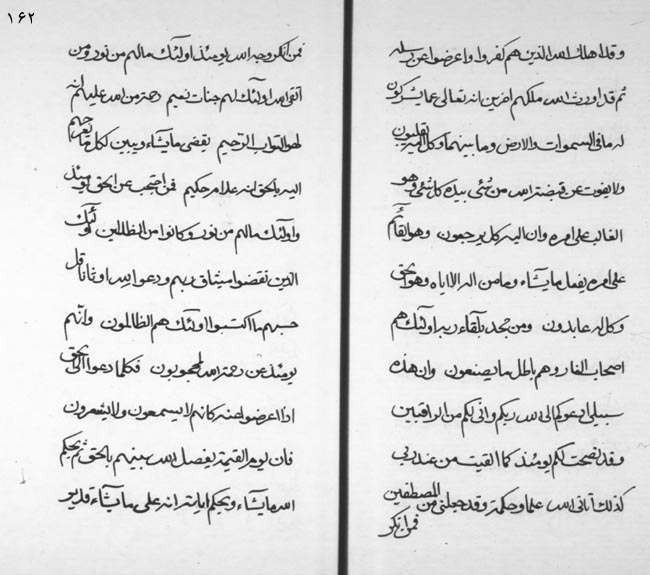 ١٦٢
وقد اهلك الله الذين هم كفروا واعرضوا عن رسله
ثم قد اورث الله ملكهم اخرين انه تعالى عما يشركون
له ما في السموات والارض وما بينهما وكل اليه يقلبون
ولا يفوت عن قبضته الله من شئ بيده كل شئ وهو
الغالب على امره وان اليه كل يرجعون وهو القائم
على امره يفعل ما يشاء وما من اله الا اياه وهو الحق
وكل له عابدون ومن جحد بلقاء ربه اولئك هم
اصحاب النار وهم باطل ما يصنعون وان هذه
سبيلى ادعوكم الى الله ربكم وانى لكم من الراقبين
وقد نصحت لكم يومئذ كما القيت من عند ربى
كذلك اتانى الله علما وحكمة وقد جعلنى من المصطفين
فمن انكر
فمن انكر وجه الله يومئذ اولئك ما لهم من نور ومن
اتقى الله اولئك لهم جنات نعيم رحمة من الله عليهم انه
لهو التواب الرحيم يقضى ما يشاء ويبين لكل
اليه بالحق انه علام حكيم فمن احتجب عن الحق يومئذ
واولئك ما لهم من نور وكانوا من الظالمين اولئك
الذين نقضوا ميثاق ربهم ودعوا الله
حسبهم ما اكتسبوا اولئك هم الظالمون وانهم
يومئذ عن رحمة الله لمحجوبون فكلما دعوا الى الحق
اذا اعرضوا عنه كانهم لا يسمعون ولا يشعرون
فان يوم القيمة يفصل الله بينهم بالحق ثم يحكم
الله ما يشاء ويحكم اياته انه على ما يشاء قدير